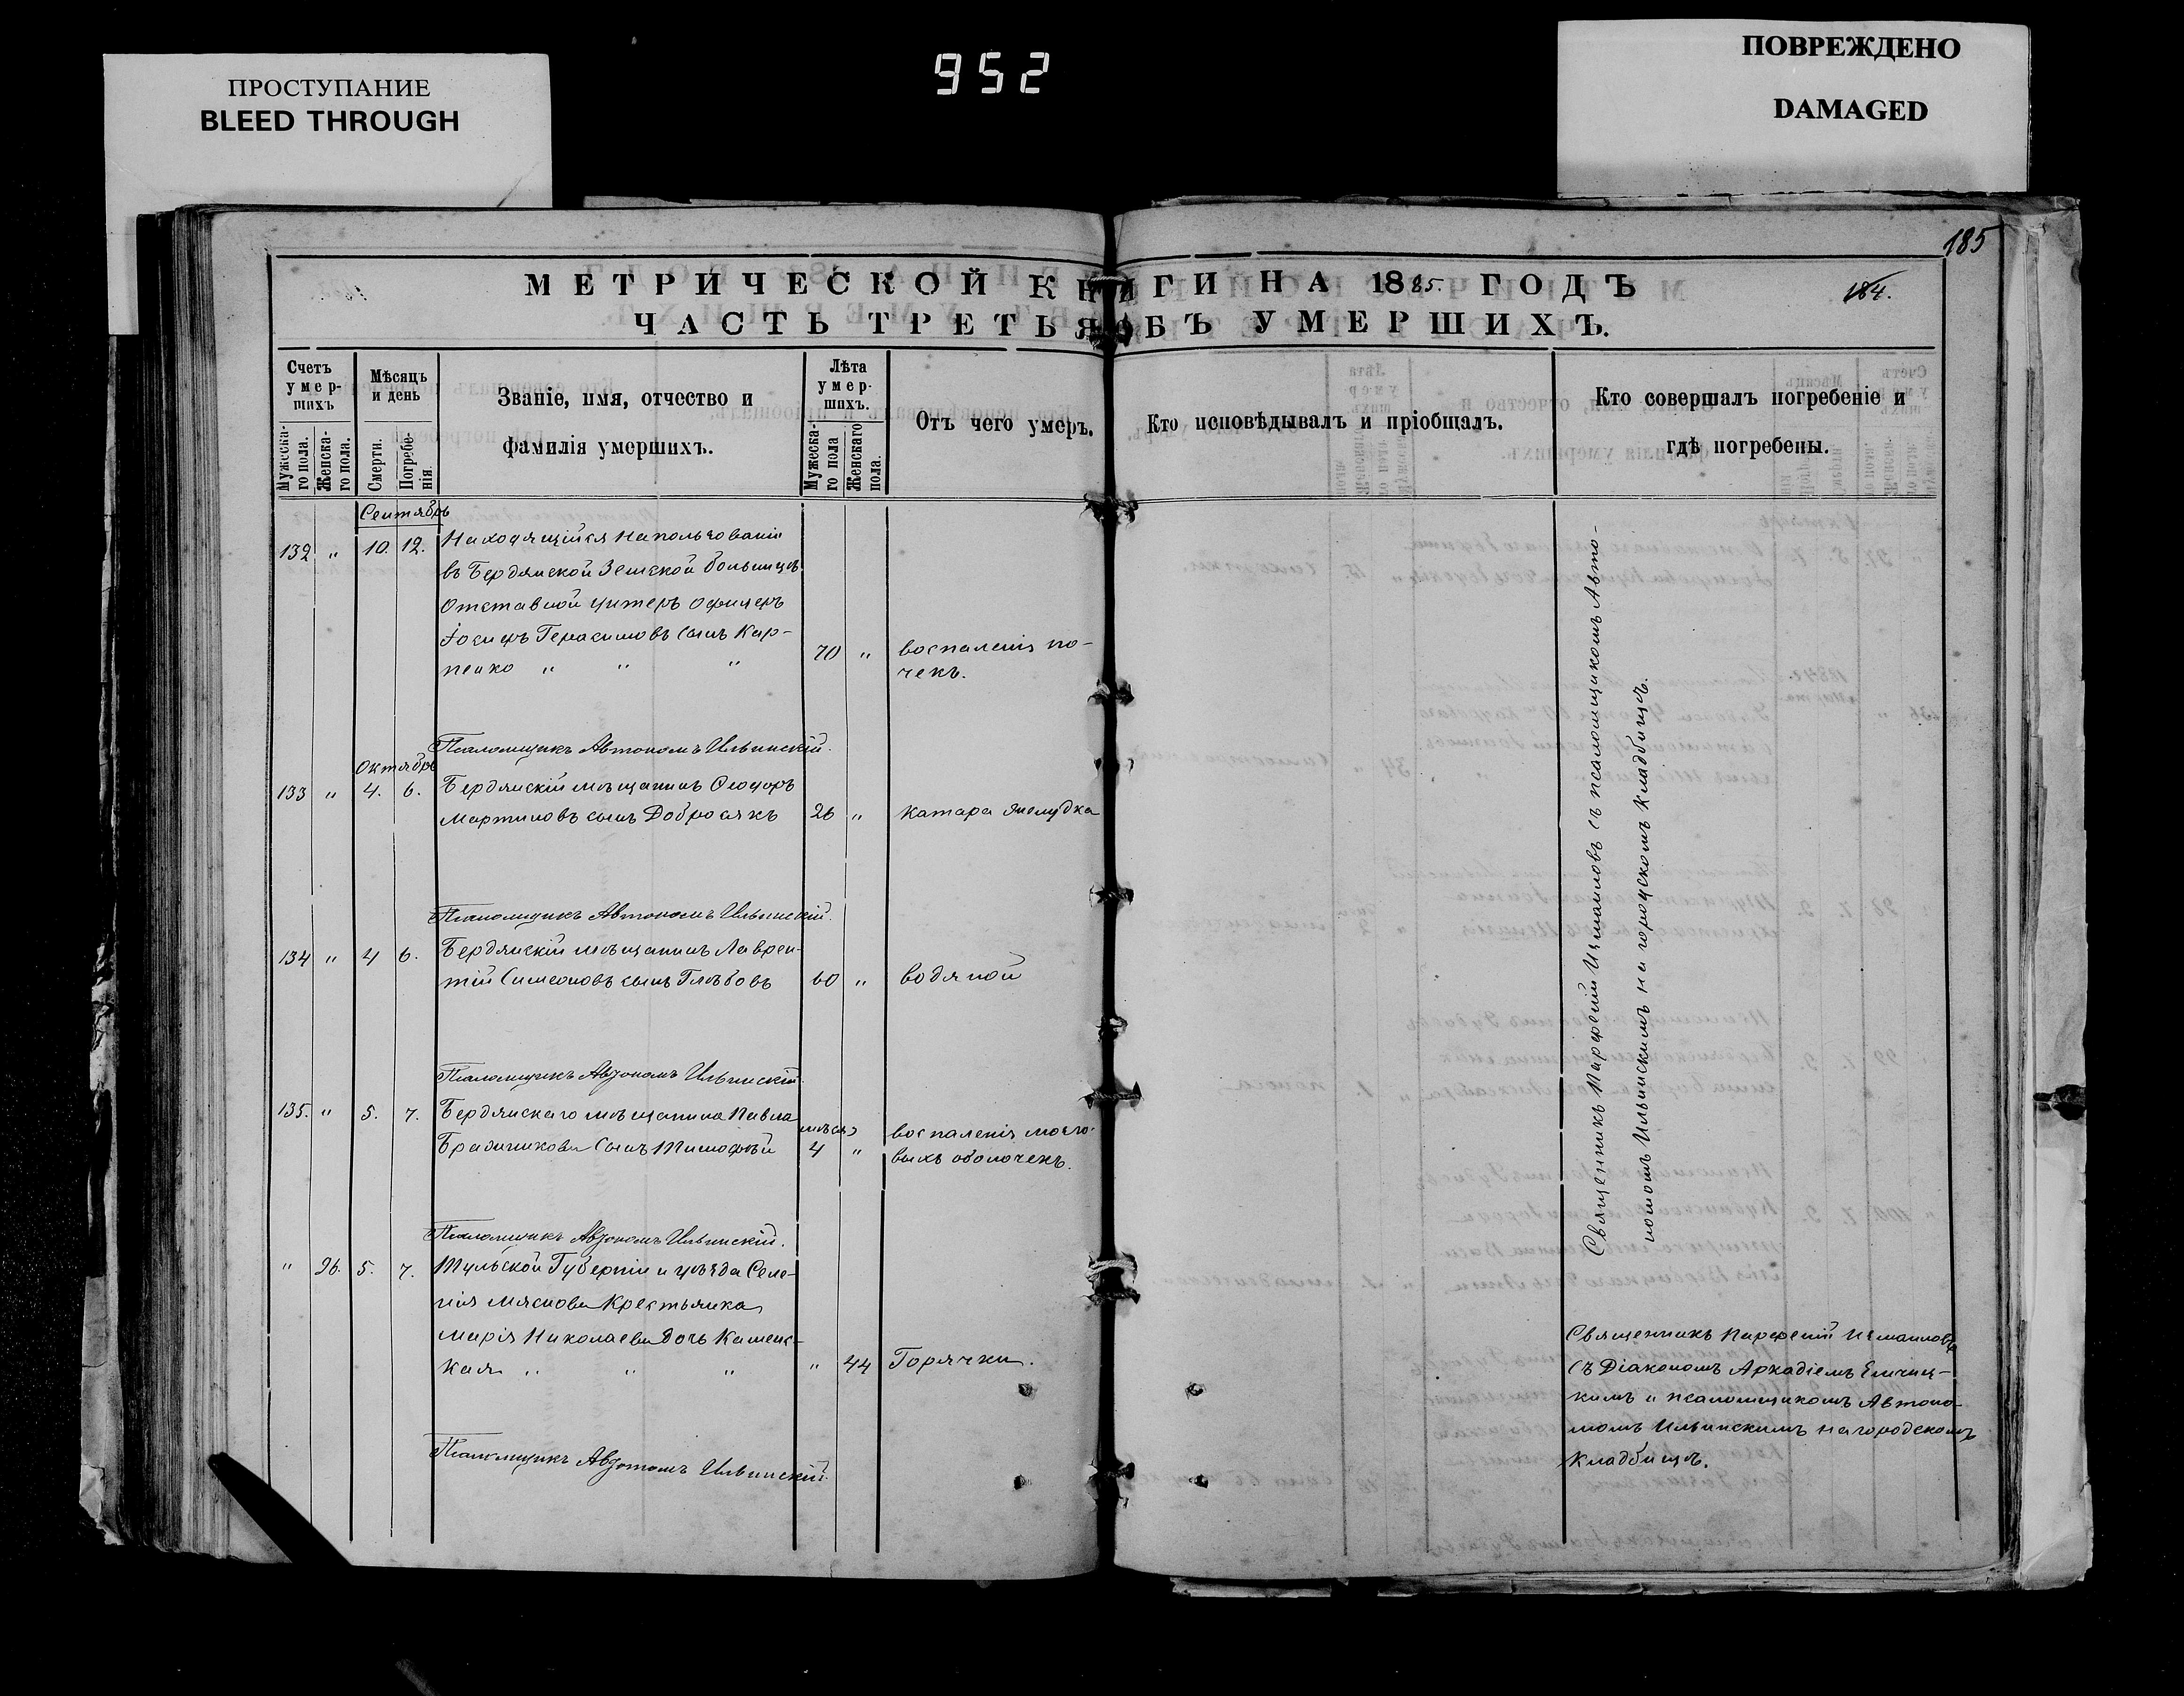 ПРОСТУПАНИЕ
BLEED THROUGH
952
ПОВРЕЖДЕНО
DAMAGED
185
184.
МЕТРИЧЕСКОЙ КНИГИ НА 1885. ГОДЪ
ЧАСТЬ ТРЕТЬЯ ОБЪ УМЕРШИХЪ.
Счетъ умер-шихъ
Мужеска-го пола.
Женска-го пола.
Мѣсяцъ и день
Смерти.
Погребе-нія.
Званіе, имя, отчество и
фамилія умершихъ.
Лѣта умер-шихъ.
Мужеска-го пола
Женскаго пола.
Отъ чего умеръ.
Кто исповѣдывалъ и пріобщалъ.
Кто совершалъ погребеніе и
гдѣ погребены.
Сентябрь
132 " 10. 12. Находящійся на пользованіи
въ Бердянской Земской больницѣ
Отставной унтеръ офицеръ
Іосифъ Герасимовъ сынъ Кар-
пенко " " " 70 " воспаленія по-
чекъ.
Псаломщикъ Автономъ Ильинскій.
Октябрь
133 " 4. 6. Бердянскій мѣщанинъ Ѳеодоръ
Мартиновъ сынъ Добросякъ 26 " катара желудка
Псаломщикъ Автономъ Ильинскій.
134 " 4 6. Бердянскій мѣщанинъ Лаврен-
тій Симеоновъ сынъ Глѣбовъ 60 " водяной
Псаломщикъ Автономъ Ильинскій.
135. " 5. 7. Бердянскаго мѣщанина Павла
Бражникова сынъ Тимофей мѣсяц 4 " воспаленія мозго-
выхъ оболочекъ.
Псаломщикъ Автономъ Ильинскій.
" 96. 5. 7. Тульской Губерніи и уѣзда Селе-
нія Мяснова Крестьянка
Марія Николаева дочь Каменс-
кая " " " " 44 Горячки.
Псаломщикъ Автономъ Ильинскій.
Священникъ Парфеній Измаиловъ съ псаломщикомъ Авто-
номомъ Ильинскимъ на городскомъ кладбищѣ.
Священникъ Парфеній Измаиловъ
съ Діакономъ Аркадіемъ
и псаломщикомъ Автоно-
момъ Ильинскимъ на городскомъ
кладбищѣ.